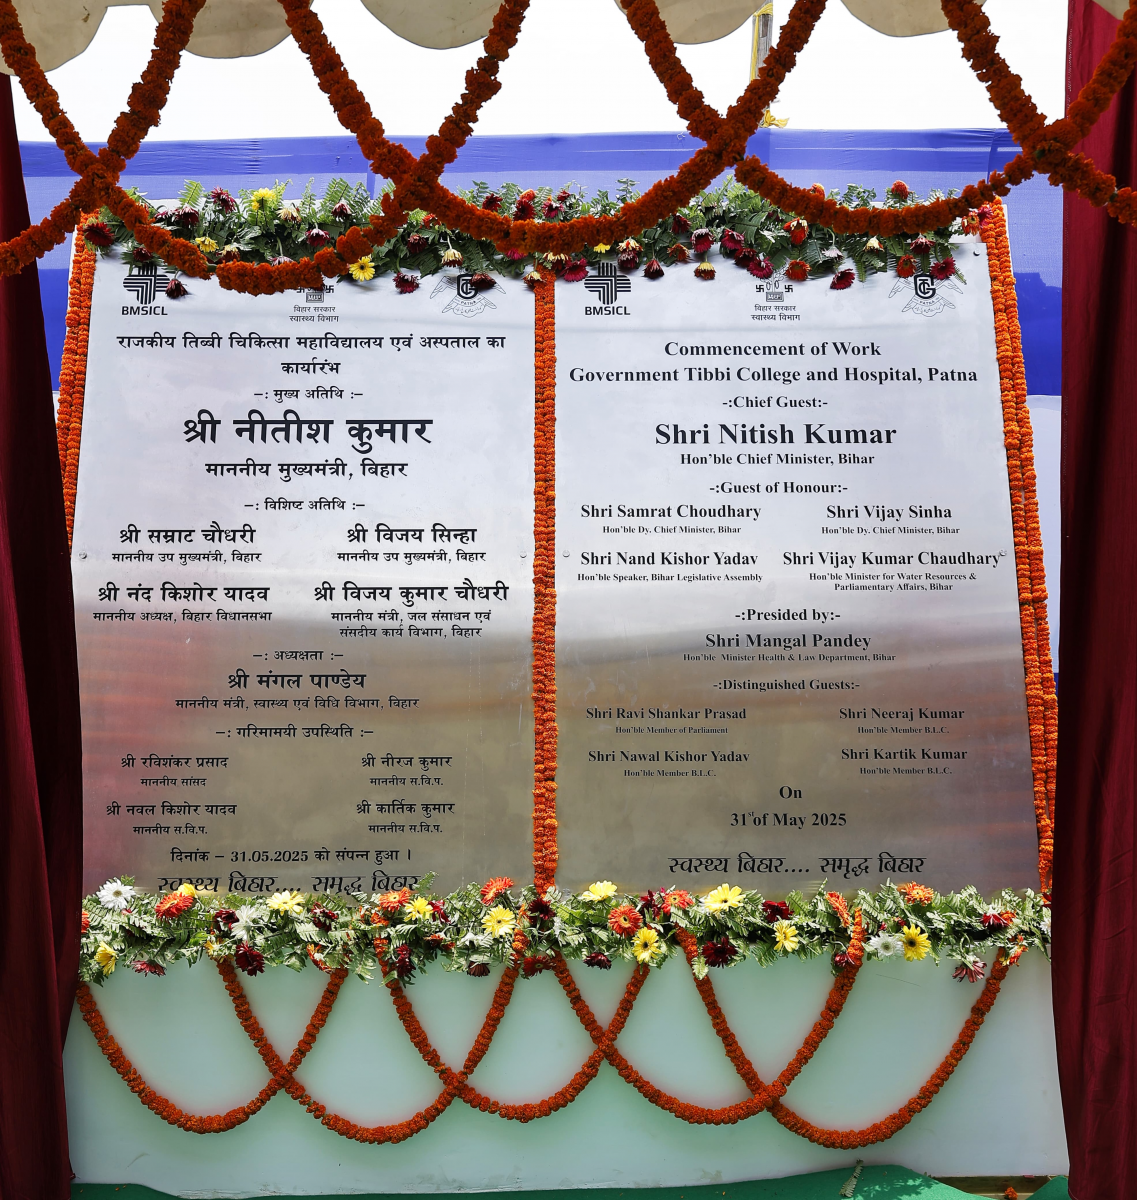 BMSICL
बिहार सरकार
स्वास्थ्य विभाग
PATNA
राजकीय तिब्बी चिकित्सा महाविद्यालय एवं अस्पताल का
कार्यारंभ
-: मुख्य अतिथि :-
श्री नीतीश कुमार
माननीय मुख्यमंत्री, बिहार
-: विशिष्ट अतिथि :-
श्री सम्राट चौधरी श्री विजय सिन्हा
माननीय उप मुख्यमंत्री, बिहार माननीय उप मुख्यमंत्री, बिहार
श्री नंद किशोर यादव श्री विजय कुमार चौधरी
माननीय अध्यक्ष, बिहार विधानसभा माननीय मंत्री, जल संसाधन एवं
संसदीय कार्य विभाग, बिहार
-: अध्यक्षता :-
श्री मंगल पाण्डेय
माननीय मंत्री, स्वास्थ्य एवं विधि विभाग, बिहार
-: गरिमामयी उपस्थिति :-
श्री रविशंकर प्रसाद श्री नीरज कुमार
माननीय सांसद माननीय स.वि.प.
श्री नवल किशोर यादव श्री कार्तिक कुमार
माननीय स.वि.प. माननीय स.वि.प.
दिनांक - 31.05.2025 को संपन्न हुआ ।
स्वस्थ्य बिहार.... समृद्ध बिहार
BMSICL
बिहार सरकार
स्वास्थ्य विभाग
PATNA
Commencement of Work
Government Tibbi College and Hospital, Patna
-:Chief Guest:-
Shri Nitish Kumar
Hon'ble Chief Minister, Bihar
-:Guest of Honour:-
Shri Samrat Choudhary Shri Vijay Sinha
Hon'ble Dy. Chief Minister, Bihar Hon'ble Dy. Chief Minister, Bihar
Shri Nand Kishor Yadav Shri Vijay Kumar Chaudhary
Hon'ble Speaker, Bihar Legislative Assembly Hon'ble Minister for Water Resources &
Parliamentary Affairs, Bihar
-:Presided by:-
Shri Mangal Pandey
Hon'ble Minister Health & Law Department, Bihar
-:Distinguished Guests:-
Shri Ravi Shankar Prasad Shri Neeraj Kumar
Hon'ble Member of Parliament Hon'ble Member B.L.C.
Shri Nawal Kishor Yadav Shri Kartik Kumar
Hon'ble Member B.L.C. Hon'ble Member B.L.C.
On
31st of May 2025
स्वस्थ्य बिहार.... समृद्ध बिहार